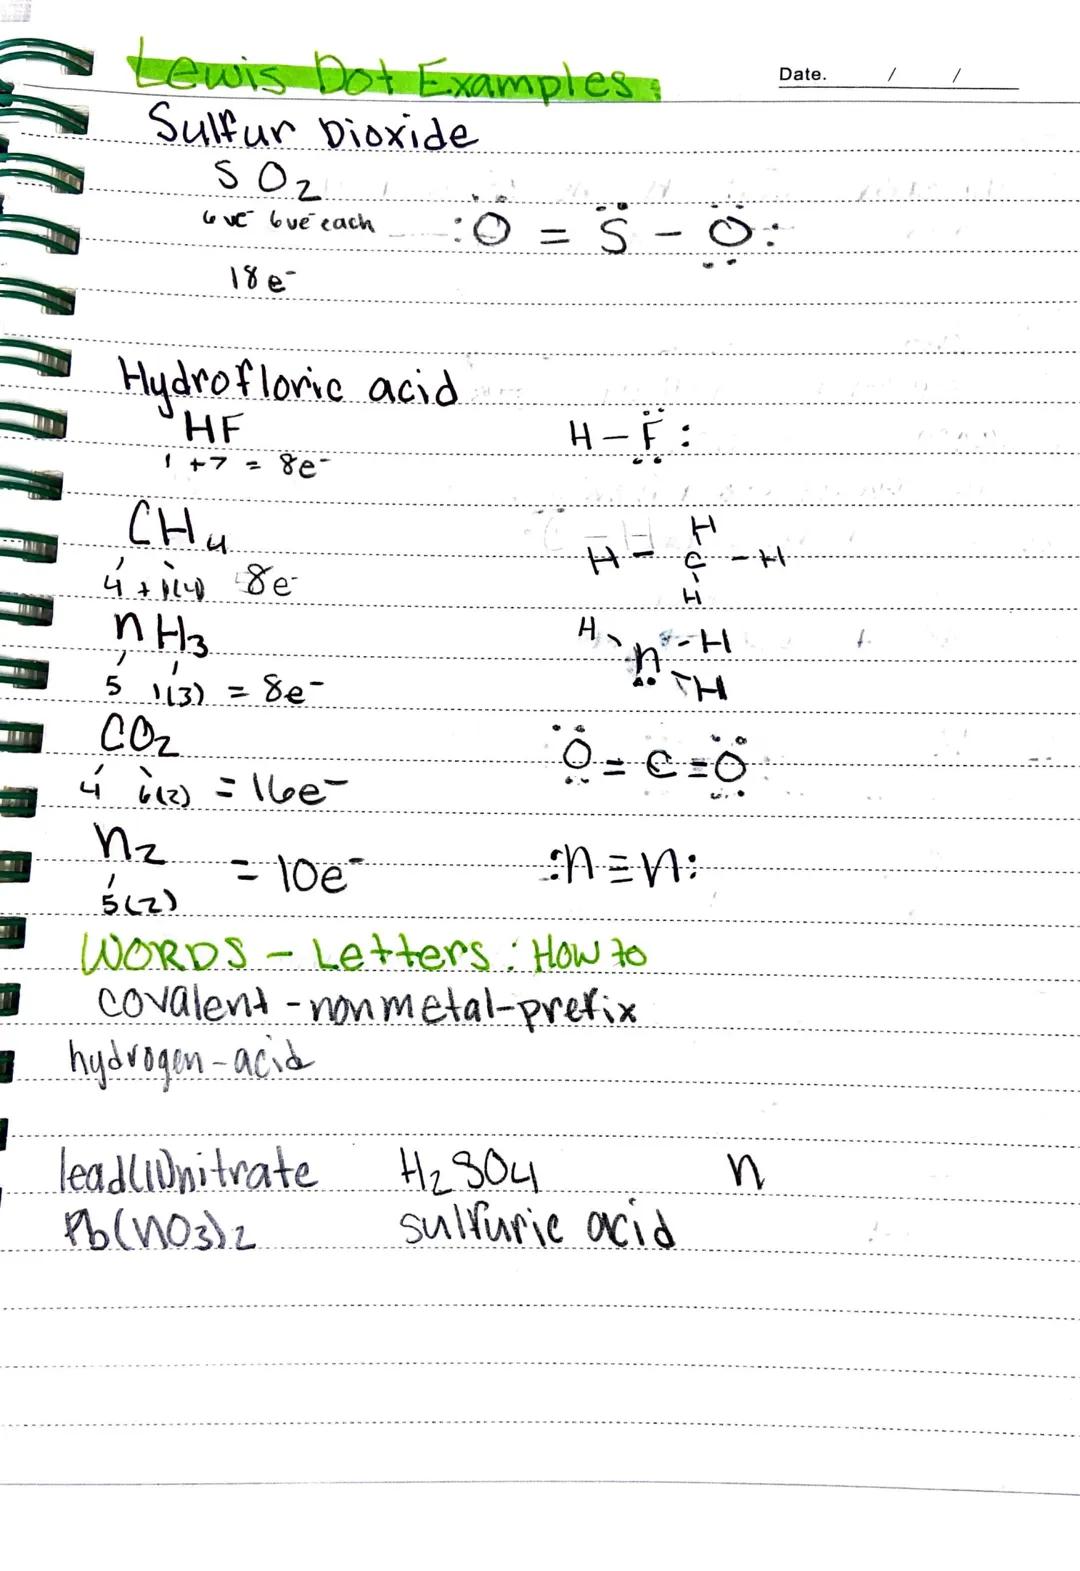 Lewis Dot Examples:
Date. / /
Sulfur Dioxide
SO2
6ve- 6ve- each
:O = S - O:
18e-
Hydrofloric acid
HF
H - F:
1 + 7 = 8e-
CH4
H
H - C - H
4 + 1(4) 8e-
H
nH3
H n - H
H
5 1(3) = 8e-
CO2
O = C = O
4 6(2) = 16e-
n2 = 10e-
:n ≡ n:
5(2)
WORDS - Letters: How to
covalent - nonmetal - prefix
hydrogen - acid
lead(II)nitrate H2SO4 n
Pb(NO3)2 sulfuric acid